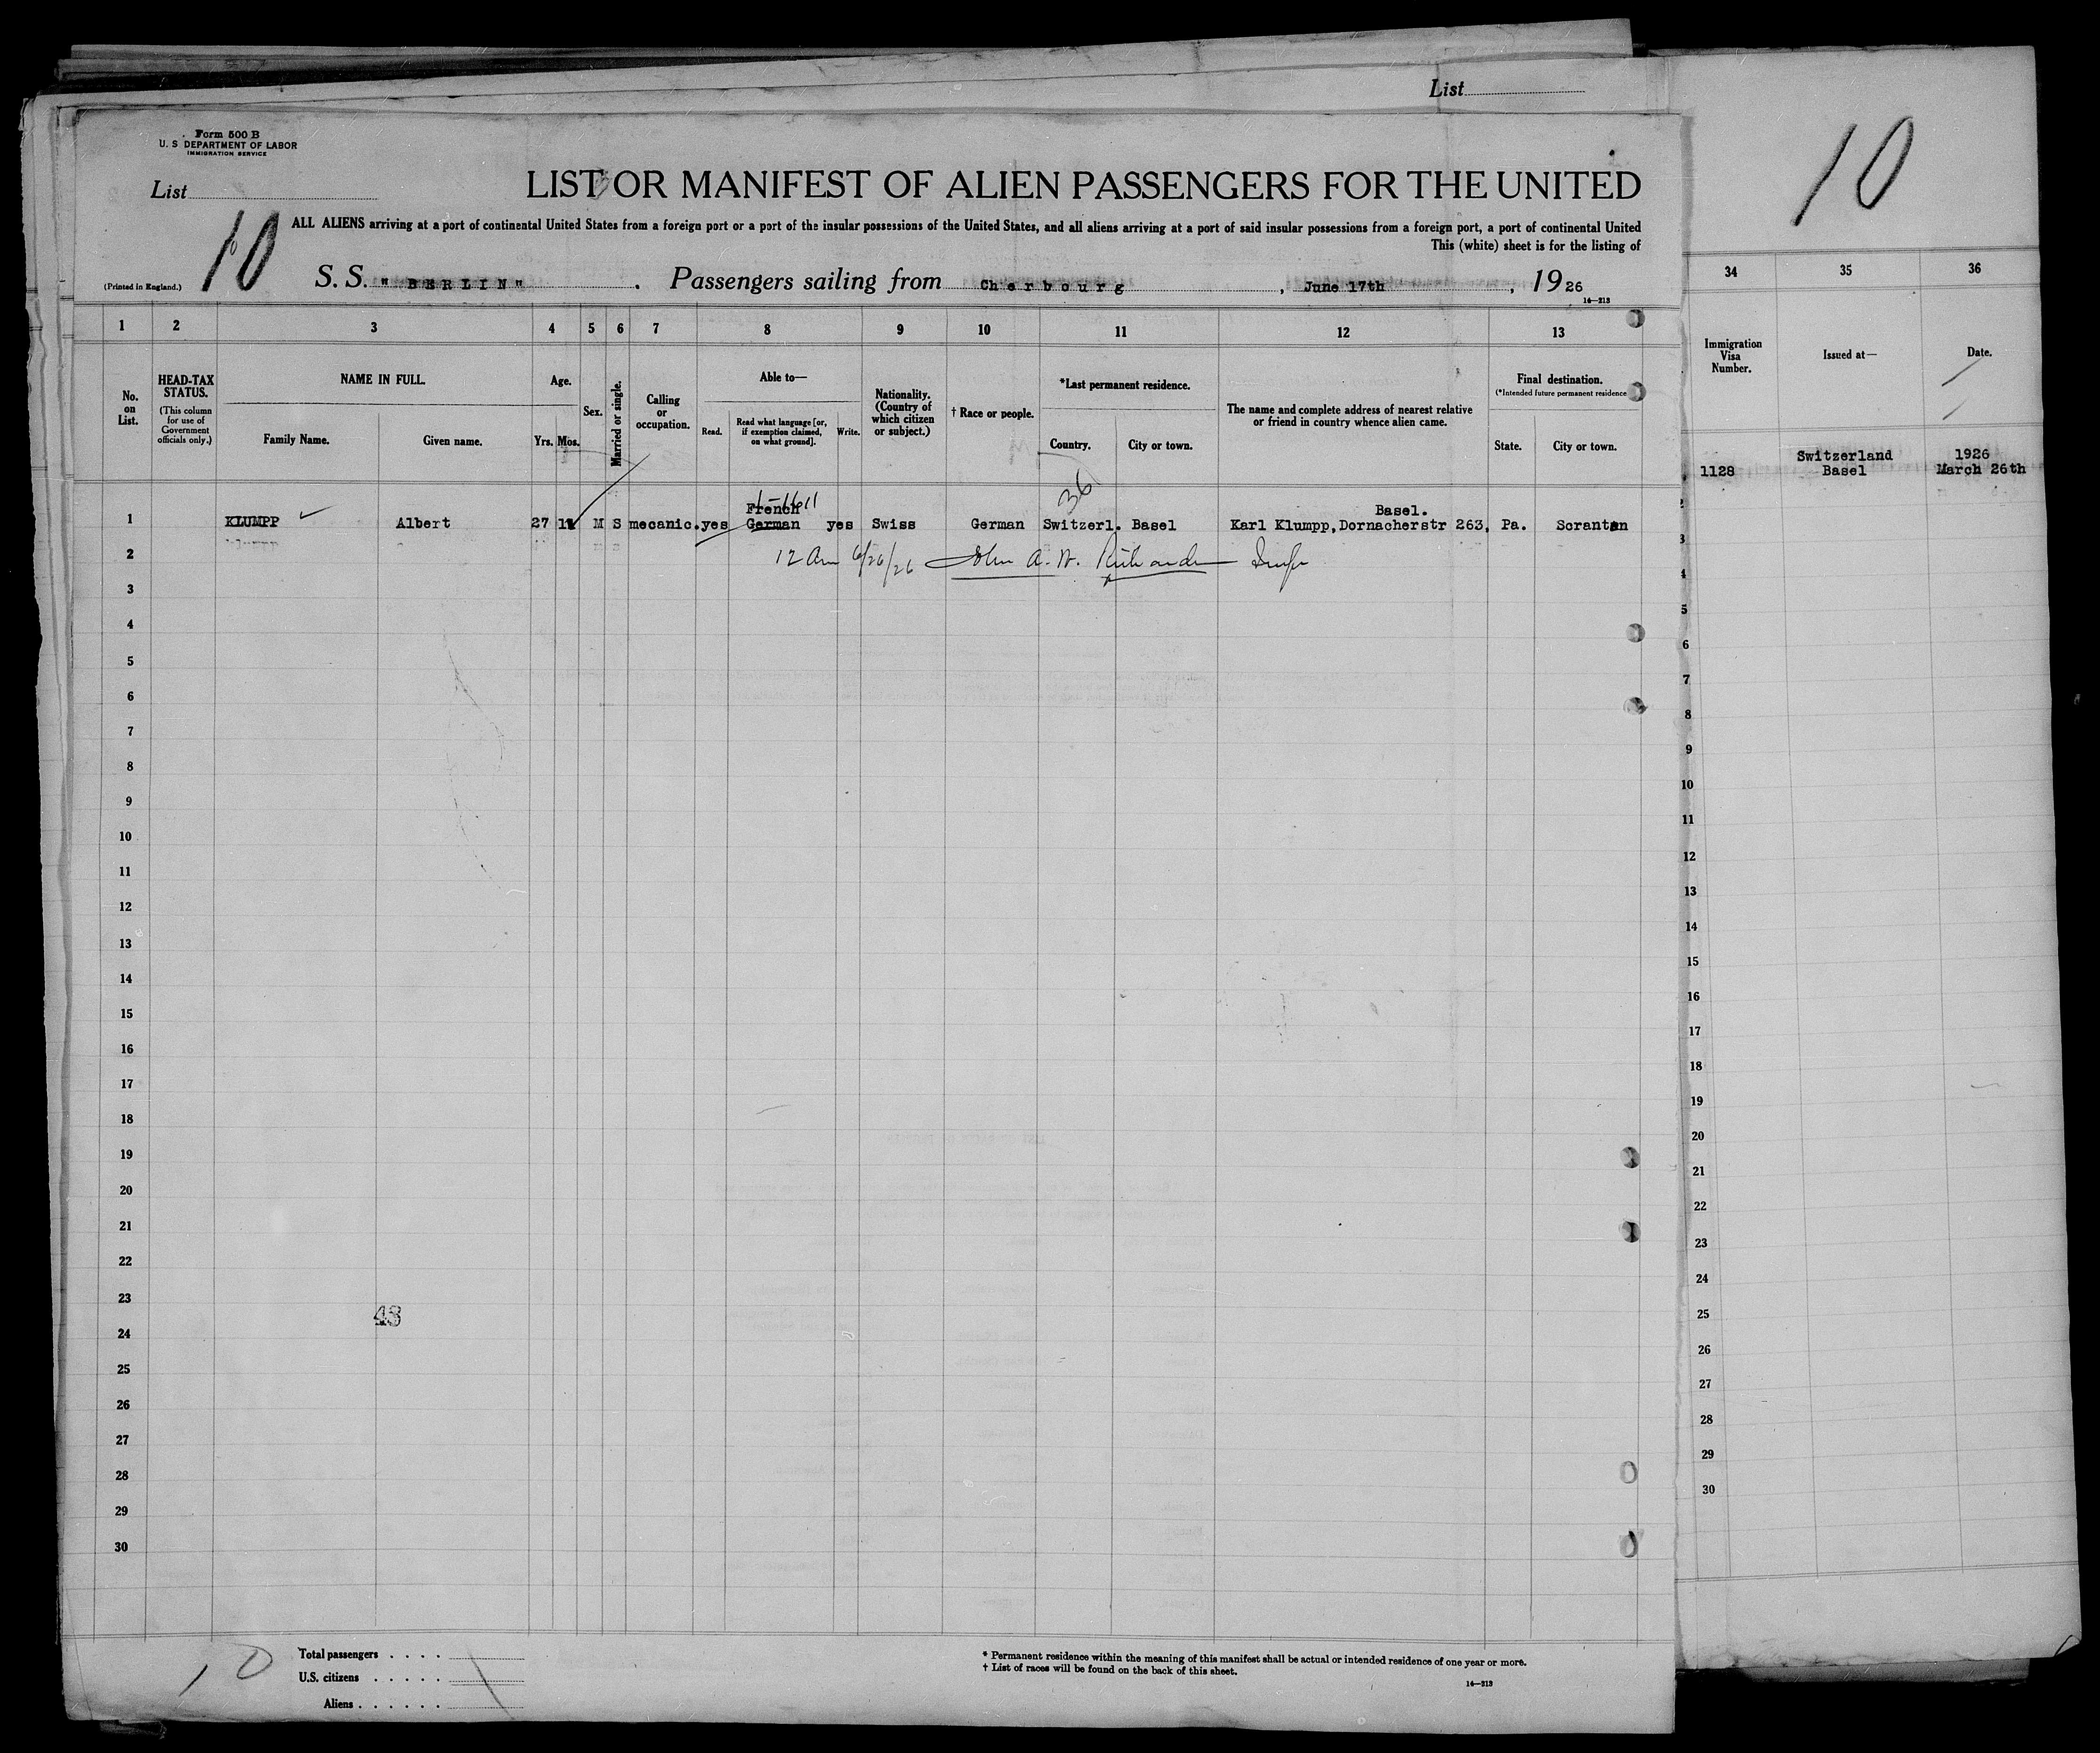 List
Form 500 B
U. S DEPARTMENT OF LABOR
IMMIGRATION SERVICE
List
10
LIST OR MANIFEST OF ALIEN PASSENGERS FOR THE UNITED
ALL ALIENS arriving at a port of continental United States from a foreign port or a port of the insular possessions of the United States, and all aliens arriving at a port of said insular possessions from a foreign port, a port of continental United
This (white) sheet is for the listing of
(Printed in England.)
S. S. "BERLIN". Passengers sailing from Cherbourg, June 17th, 1926
14—213
1 2 3 4 5 6 7 8 9 10 11 12 13
No. on List.
HEAD-TAX STATUS.
(This column for use of Government officials only.)
NAME IN FULL.
Family Name. Given name.
Age.
Yrs. Mos.
Sex.
Married or single.
Calling or occupation.
Able to—
Read. Read what language [or, if exemption claimed, on what ground]. Write.
Nationality. (Country of which citizen or subject.)
† Race or people.
*Last permanent residence.
Country. City or town.
The name and complete address of nearest relative or friend in country whence alien came.
Final destination.
(*Intended future permanent residence
State. City or town.
36
French Basel.
1 KLUMPP Albert 27 M S mecanic. yes German yes Swiss German Switzerl. Basel Karl Klumpp, Dornacherstr 263, Pa. Scranton
2 12 Am 6/26/26 John A. W.
3
4
5
6
7
8
9
10
11
12
13
14
15
16
17
18
19
20
21
22
23
43
24
25
26
27
28
29
30
10
Total passengers . . . .
U.S. citizens . . . . .
Aliens . . . . . .
* Permanent residence within the meaning of this manifest shall be actual or intended residence of one year or more.
† List of races will be found on the back of this sheet.
14—213
10
34 35 36
Immigration Visa Number.
Issued at—
Date.
Switzerland 1926
1128 Basel March 26th
3
4
5
6
7
8
9
10
11
12
13
14
15
16
17
18
19
20
21
22
23
24
25
26
27
28
29
30